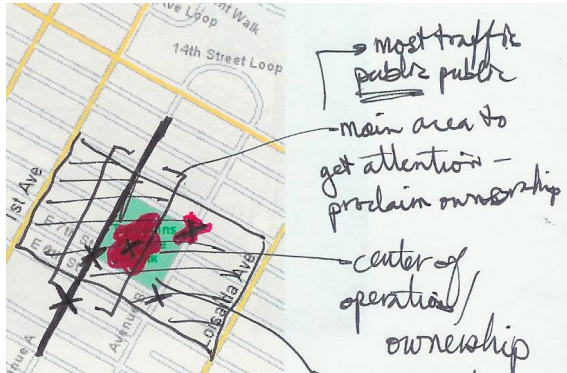 Ave Loop
nt Walk
14th Street Loop
1st Ave
Avenue B
Loisaida Ave
nue A
most traffic
public public
main area to
get attention –
proclaim ownership
center of
operation/
ownership